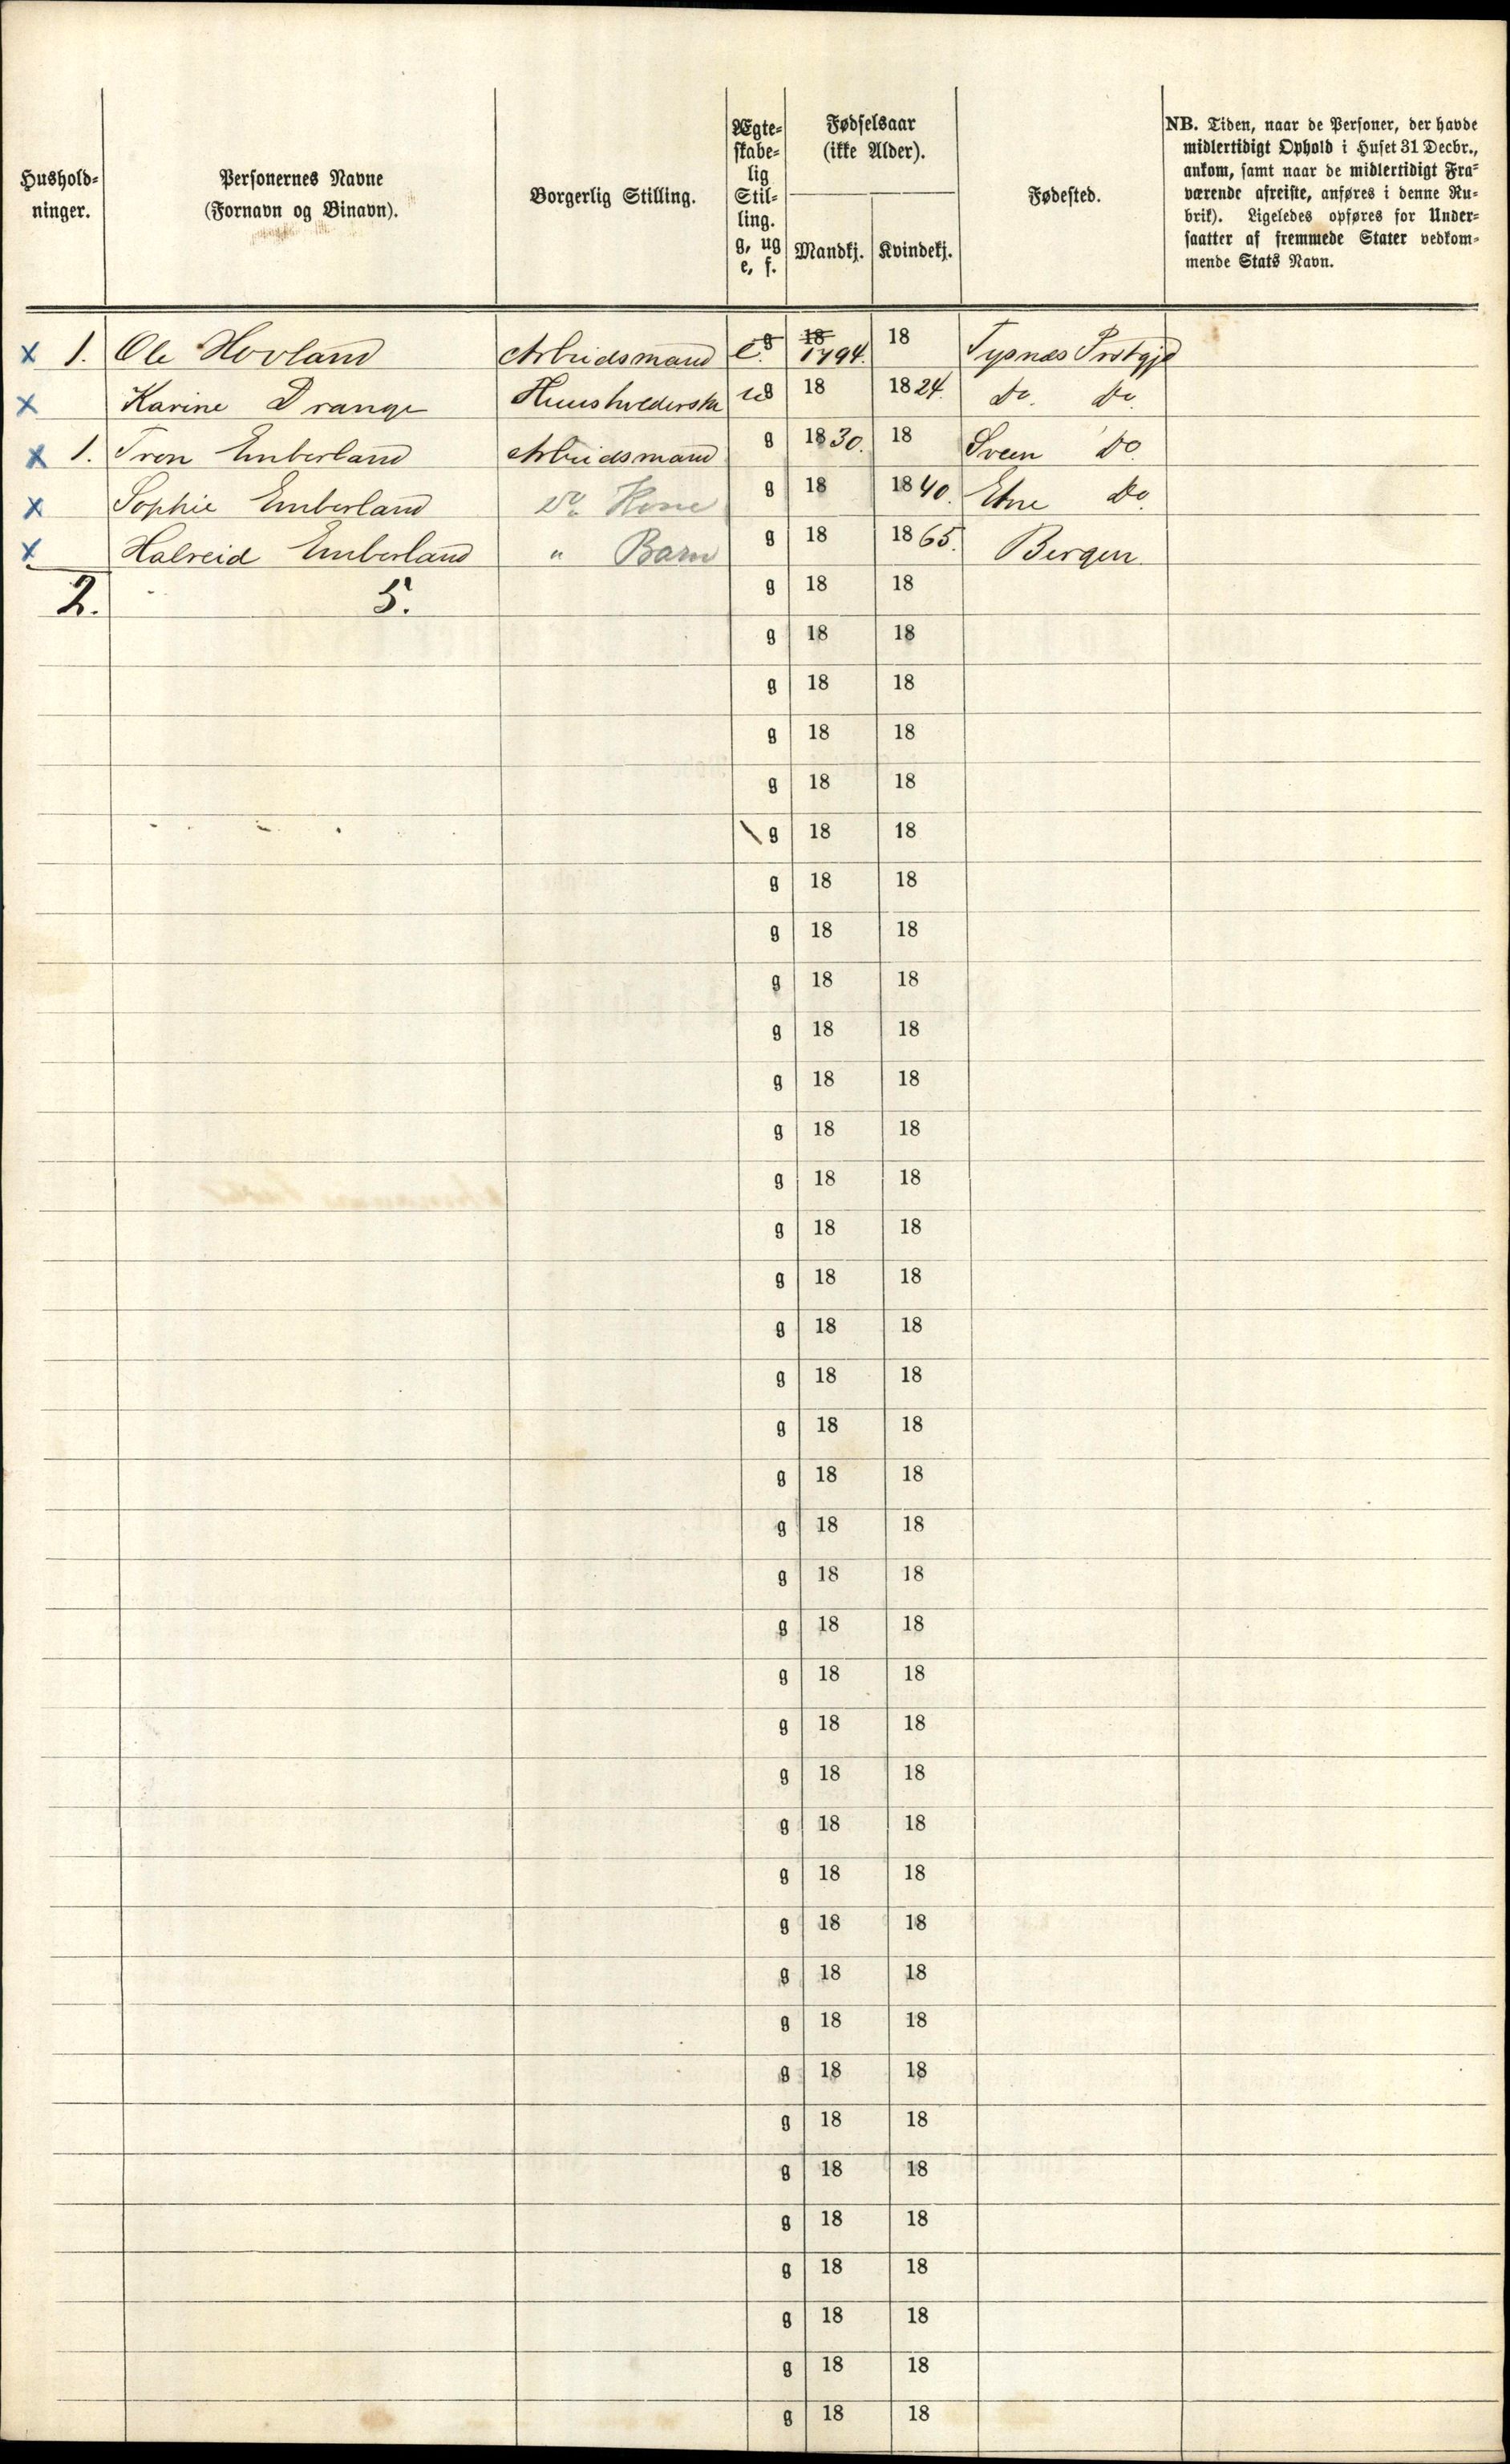 Hushold-
ninger.
Personernes Navne
(Fornavn og Binavn).
Borgerlig Stilling.
Ægte-
skabe-
lig
Stil-
ling.
g, ug
e, f.
Fødselsaar
(ikke Alder).
Mandkj.
Kvindekj.
Fødested.
NB. Tiden, naar de Personer, der havde
midlertidigt Ophold i Huset 31 Decbr.,
ankom, samt naar de midlertidigt Fra-
værende afreiste, anføres i denne Ru-
brik). Ligeledes opføres for Under-
saatter af fremmede Stater vedkom-
mende Stats Navn.
x 1. Ole Hovland Arbeidsmand e. g 18 1794. 18 Tysnæs Prstgjd
x Karine Drange Huusholderske ug 18 1824. Do. Do.
x 1. Iven Emberland Arbeidsmand g 1830. 18 Sveen Do.
x Sophie Emberland Do. Kone g 18 1840. Etne Do.
x Halreid Emberland " Barn g 18 1865. Bergen.
2. 5. g 18 18
g 18 18
g 18 18
g 18 18
g 18 18
g 18 18
g 18 18
g 18 18
g 18 18
g 18 18
g 18 18
g 18 18
g 18 18
g 18 18
g 18 18
g 18 18
g 18 18
g 18 18
g 18 18
g 18 18
g 18 18
g 18 18
g 18 18
g 18 18
g 18 18
g 18 18
g 18 18
g 18 18
g 18 18
g 18 18
g 18 18
g 18 18
g 18 18
g 18 18
g 18 18
g 18 18
g 18 18
g 18 18